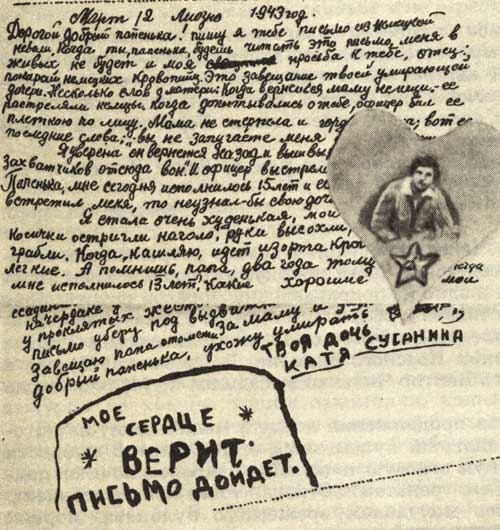 Март, 12 Лиозно 1943 год.
Дорогой добрый папенька! пишу я тебе письмо из немецкой
неволи. Когда ты, папенька, будешь читать это письмо, меня в
живых не будет и моя просьба к тебе, отец:
покарай немецких кровопийц. Это завещание твоей умирающей
дочери. Несколько слов о матери. Когда вернешься маму не ищи. ее
расстреляли немцы. Когда допытывались о тебе, офицер бил ее
плеткою по лицу. Мама не стерпела и гордо вот ее
последние слова: "вы не запугаете меня
Я уверена он вернется назад и вышвы
захватчиков отсюда вон. И офицер выстрел
Папенька, мне сегодня исполнилось 15 лет и ес
встретил меня, то не узнал-бы свою доч
Я стала очень худенькая, мои
косички остригли наголо, руки высохли,
грабли. Когда кашляю, идет изо рта кро
легкие. А помнишь, папа, два года тому когда
мне исполнилось 13 лет. Какие хорошие мои
на чердаке у
у проклятых жест
письмо уберу под
Завещаю папа отомсти за маму и
добрый папенька, ухожу умирать
ТВОЯ ДОЧЬ
КАТЯ СУСАНИНА
МОЕ
СЕРДЦЕ
ВЕРИТ.
ПИСЬМО ДОЙДЕТ.